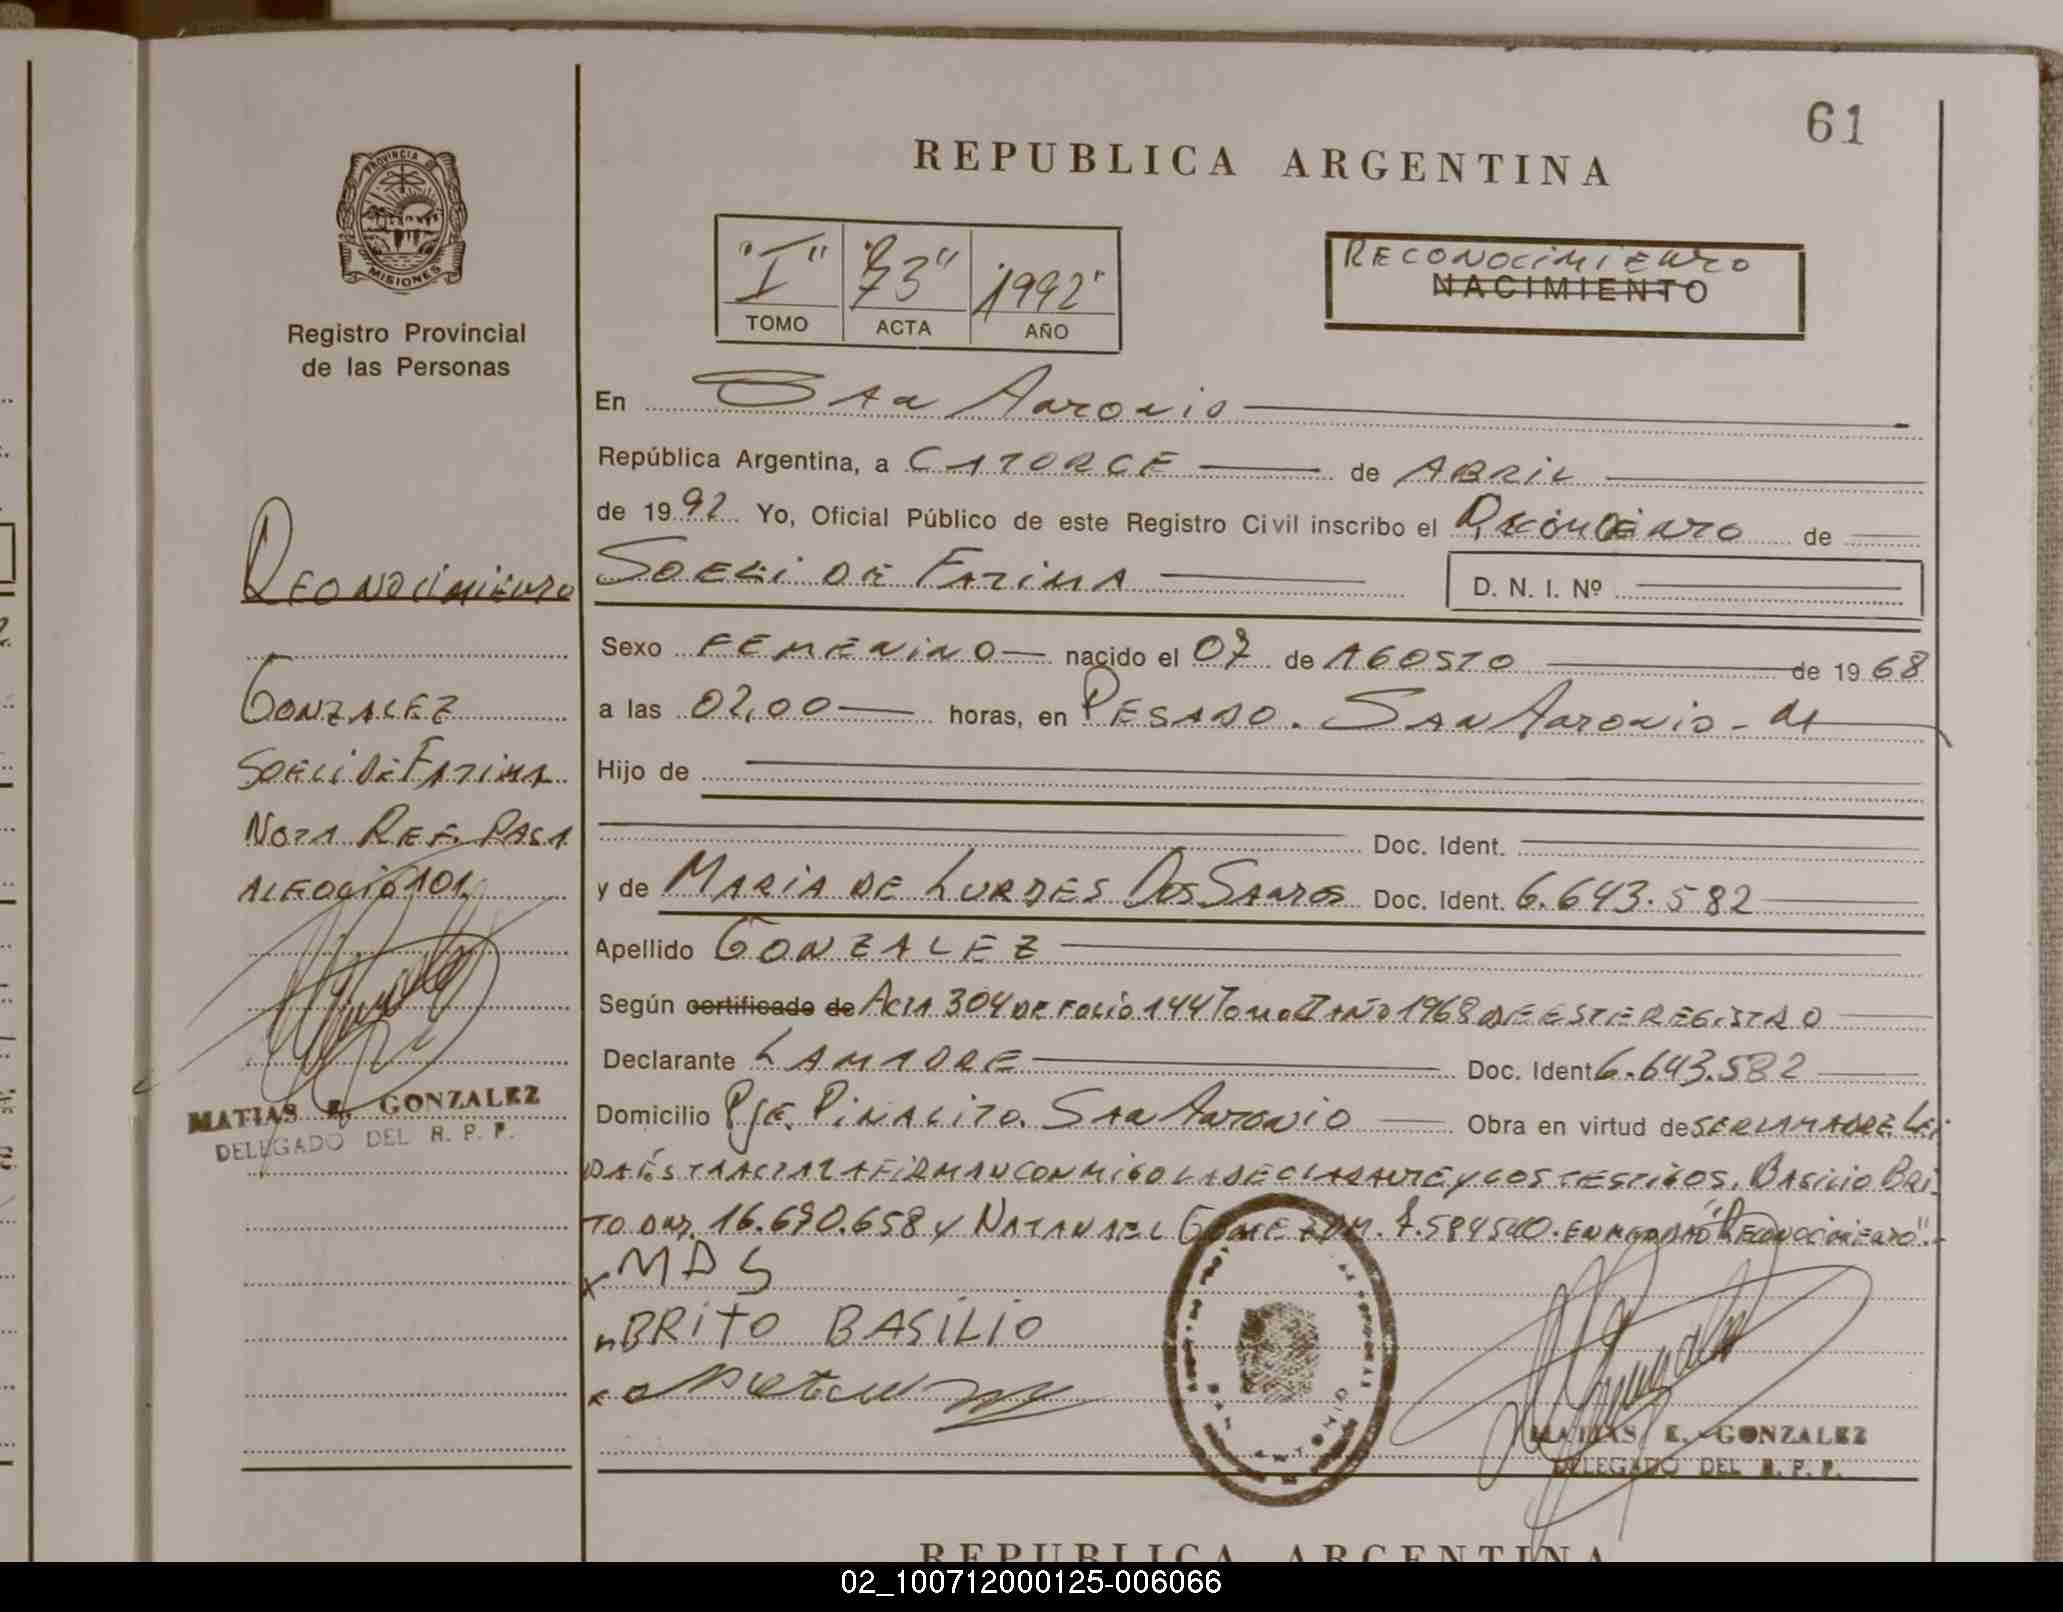 61
REPUBLICA ARGENTINA
PROVINCIA DE
MISIONES
Registro Provincial
de las Personas
"I" "73" "1992"
TOMO ACTA AÑO
RECONOCIMIENTO
NACIMIENTO
En San Antonio
República Argentina, a CATORCE de ABRIL
de 1992 Yo, Oficial Público de este Registro Civil inscribo el de
SOELI DE FATIMA D. N. I. Nº
Sexo FEMENINO nacido el 07 de AGOSTO de 1968
a las 02,00 horas, en PESADO. SAN ANTONIO -
Hijo de
Doc. Ident.
y de MARIA DE LURDES DOS SANTOS Doc. Ident. 6.643.582
Apellido GONZALEZ
Según certificado de ACTA 304 DE FOLIO 144 TOMO I AÑO 1968 DE ESTE REGISTRO
Declarante LA MADRE Doc. Ident 6.643.582
Domicilio Pje. PIÑALITO. SAN ANTONIO Obra en virtud de SER LA MADRE LEI
DA ÉSTA ACTA LA FIRMAN CONMIGO LA DECLARANTE Y LOS TESTIGOS. BASILIO BRI
TO DNI. 16.690.658 Y NATANAEL GOMEZ DM. 7.584540. ENMENDADO "RECONOCIMIENTO".
x MDS
BRITO BASILIO
MATIAS E. GONZALEZ
DELEGADO DEL R. P. P.
RECONOCIMIENTO
GONZALEZ
SOELI DE FATIMA
NOTA REF. PASA
AL FOLIO 101
MATIAS E. GONZALEZ
DELEGADO DEL R. P. P.
REPUBLICA ARGENTINA
02_100712000125-006066